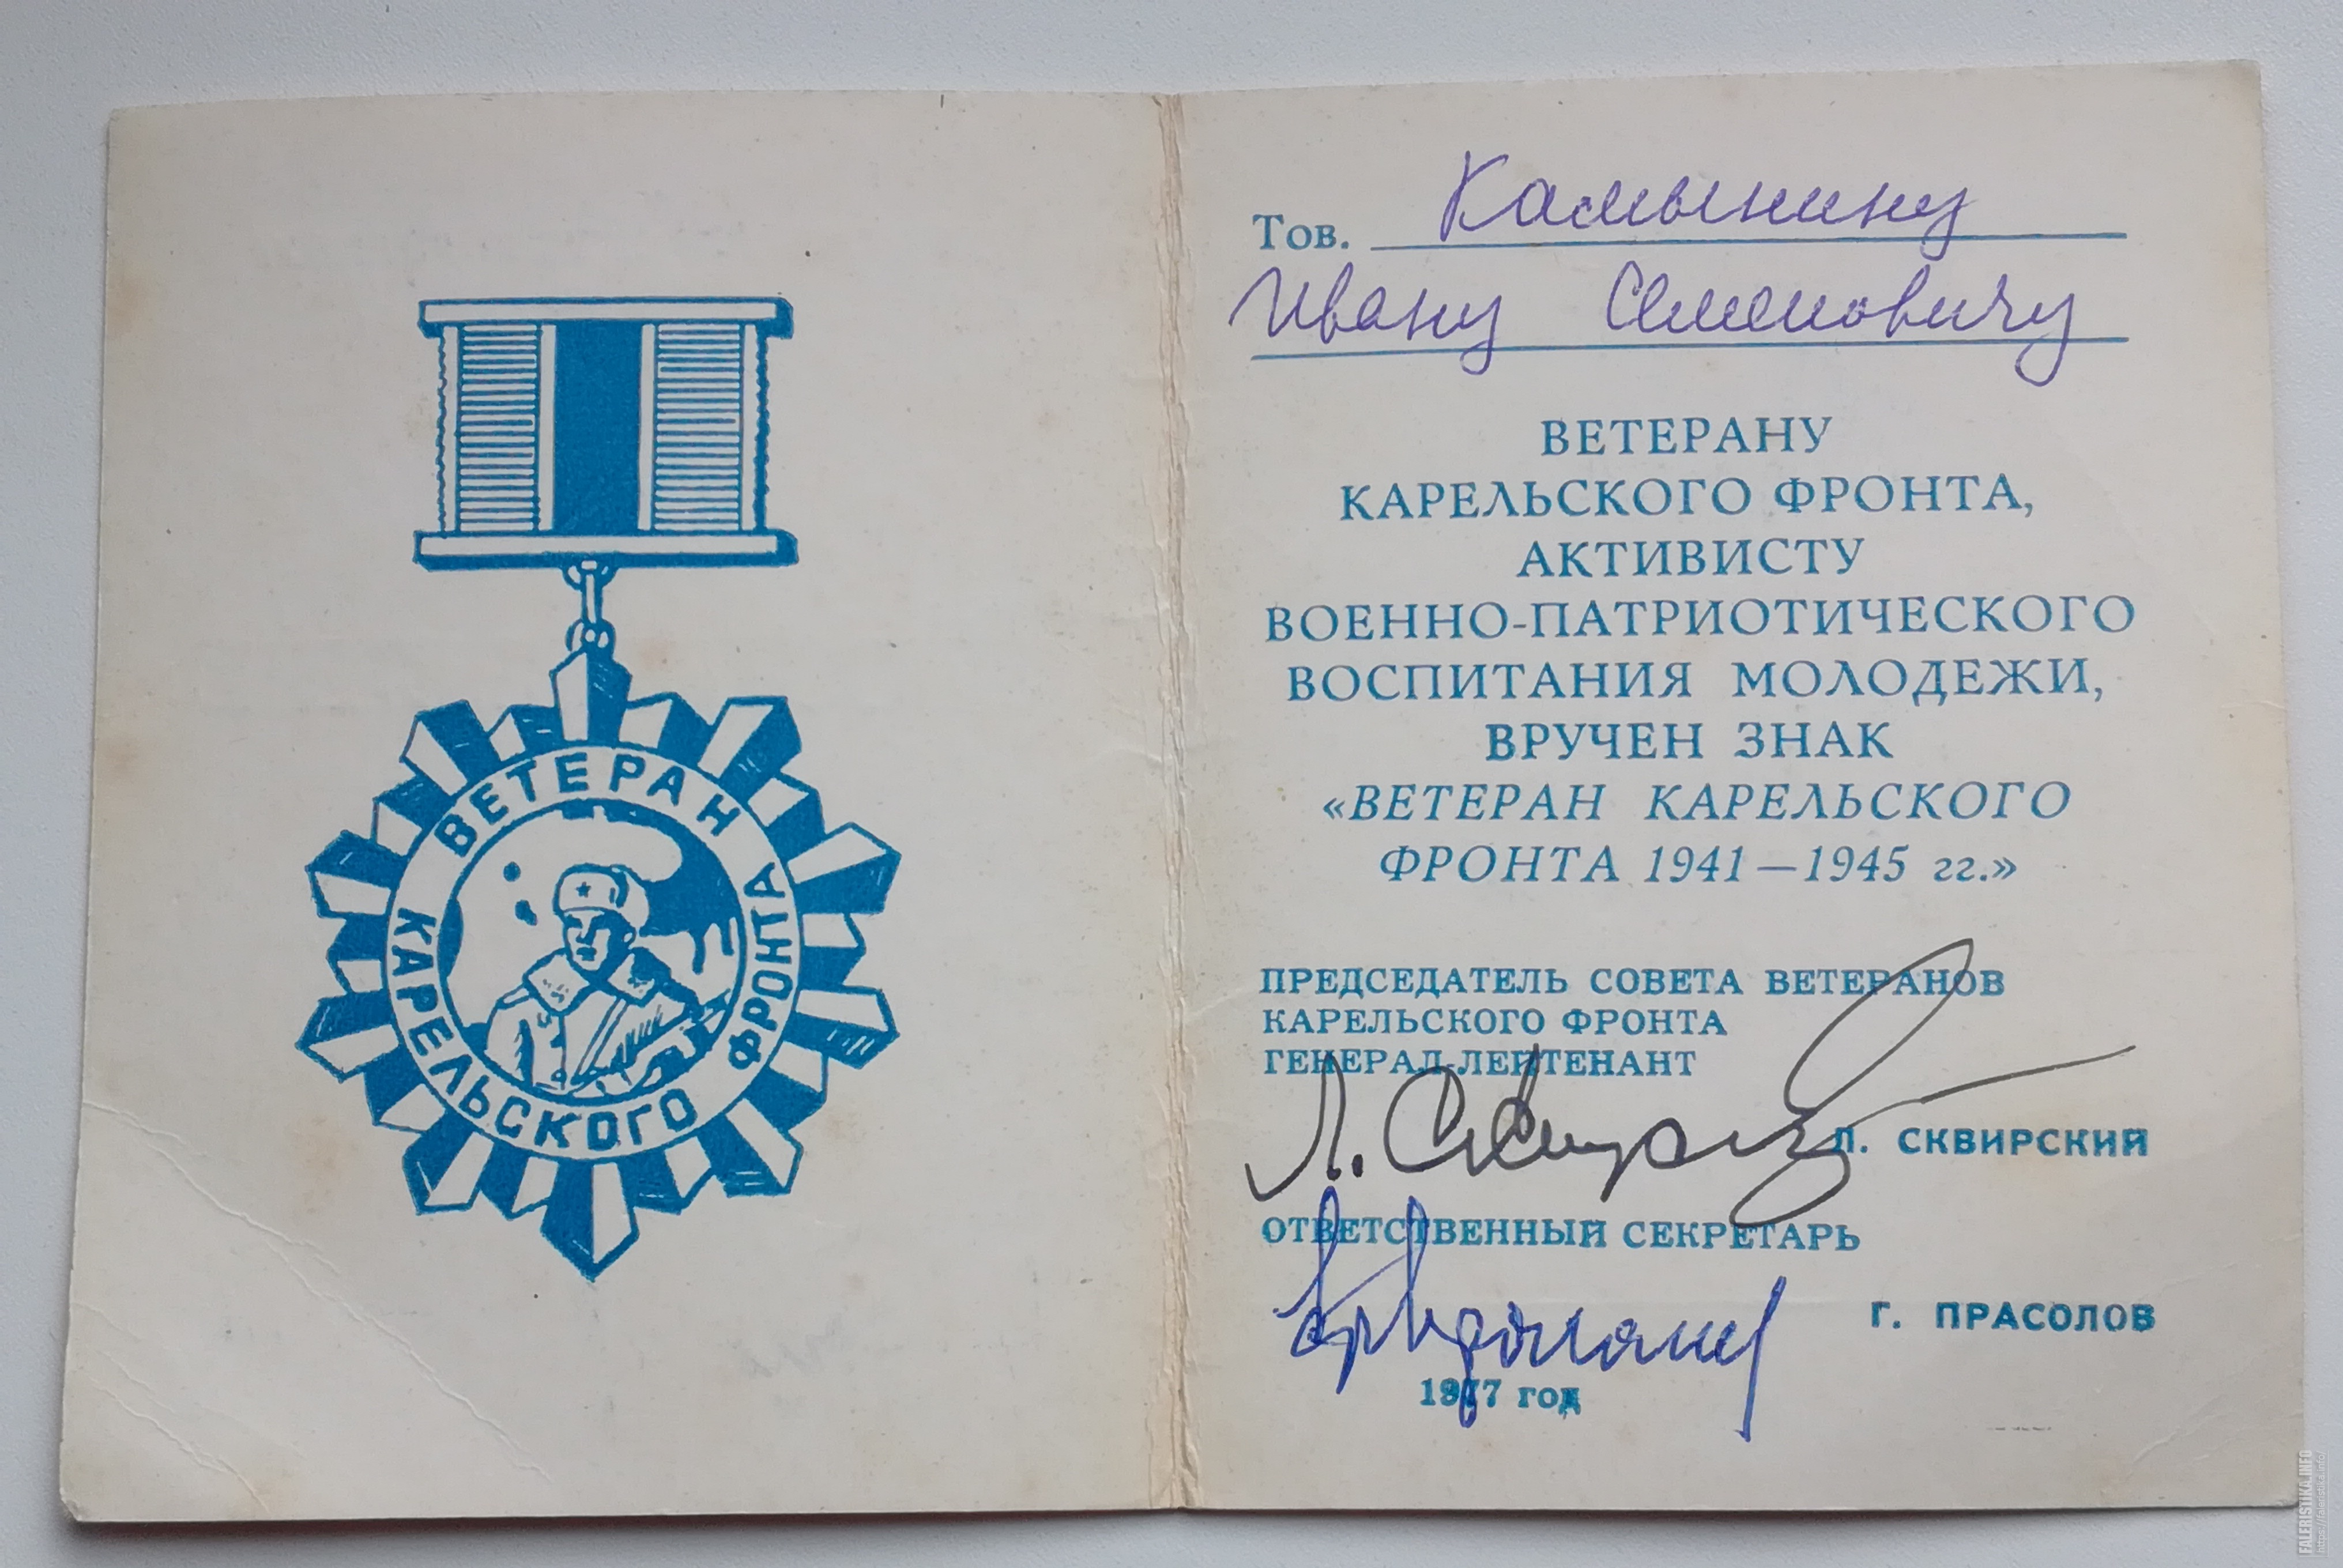 ВЕТЕРАН
КАРЕЛЬСКОГО ФРОНТА
Тов. Камынину
Ивану Семеновичу
ВЕТЕРАНУ
КАРЕЛЬСКОГО ФРОНТА,
АКТИВИСТУ
ВОЕННО-ПАТРИОТИЧЕСКОГО
ВОСПИТАНИЯ МОЛОДЕЖИ,
ВРУЧЕН ЗНАК
«ВЕТЕРАН КАРЕЛЬСКОГО
ФРОНТА 1941—1945 гг.»
ПРЕДСЕДАТЕЛЬ СОВЕТА ВЕТЕРАНОВ
КАРЕЛЬСКОГО ФРОНТА
ГЕНЕРАЛ-ЛЕЙТЕНАНТ
Л. СКВИРСКИЙ
ОТВЕТСТВЕННЫЙ СЕКРЕТАРЬ
Г. ПРАСОЛОВ
1977 год
FALERISTIKA.INFO
https://faleristika.info/